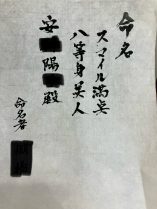 命名
スマイル満点
八等身美人
安 陽 殿
命名者